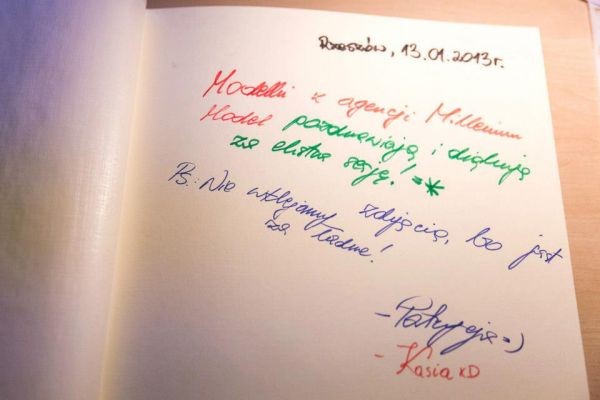 Rzeszów, 13.01.2013r.
Modelki z agencji Millenium
Model pozdrawiają i dziękują
za ekstra sesję! =*
Ps: Nie wklejamy zdjęcia, bo jest
za ładne!
- Patrycja =)
- Kasia xD